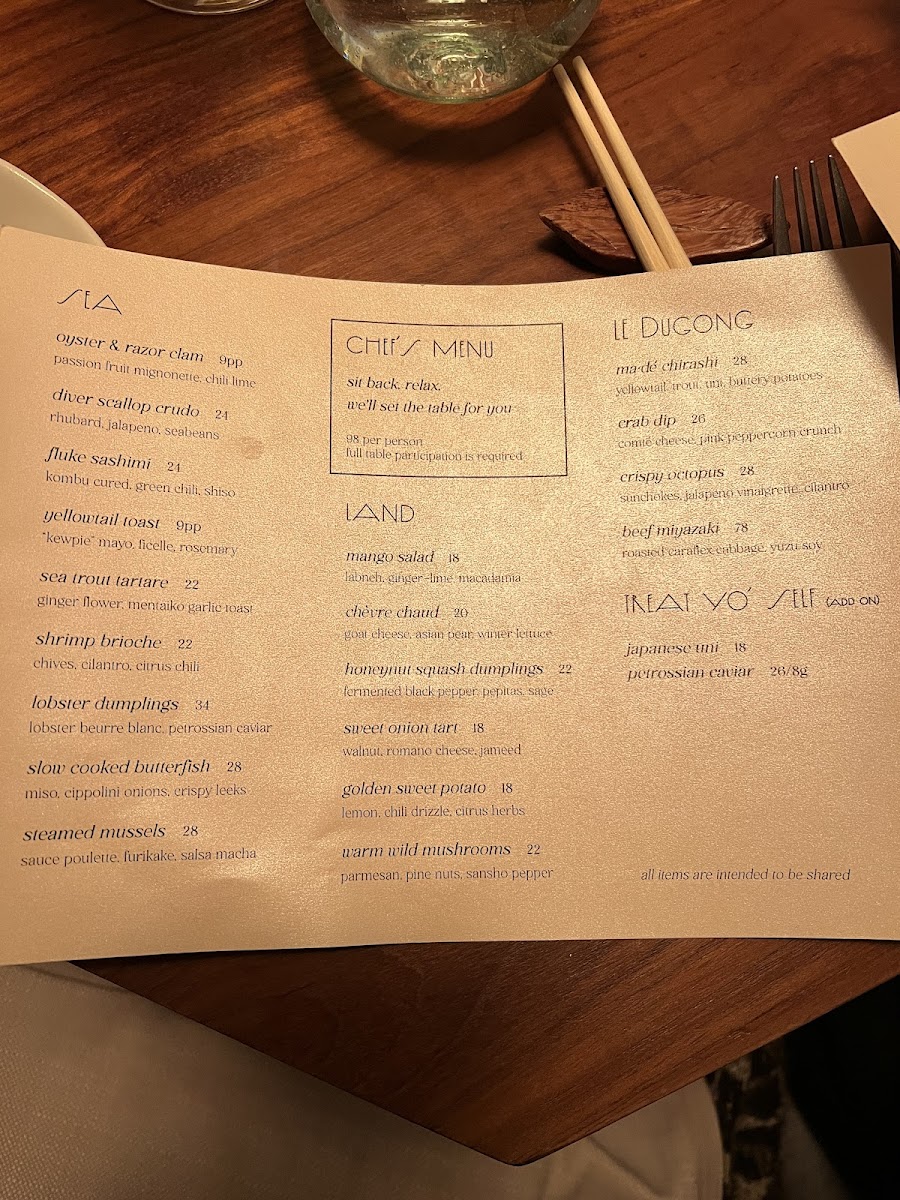 SEA
oyster & razor clam 9pp
passion fruit mignonette, chili lime
diver scallop crudo 24
rhubard, jalapeno, seabeans
fluke sashimi 24
kombu cured, green chili, shiso
yellowtail toast 9pp
"kewpie" mayo, ficelle, rosemary
sea trout tartare 22
ginger flower, mentaiko garlic toast
shrimp brioche 22
chives, cilantro, citrus chili
lobster dumplings 34
lobster beurre blanc, petrossian caviar
slow cooked butterfish 28
miso, cippolini onions, crispy leeks
steamed mussels 28
sauce poulette, furikake, salsa macha
CHEF'S MENU
sit back, relax,
we'll set the table for you
98 per person
full table participation is required
LAND
mango salad 18
labneh, ginger-lime, macadamia
chèvre chaud 20
goat cheese, asian pear, winter lettuce
honeynut squash dumplings 22
fermented black pepper, pepitas, sage
sweet onion tart 18
walnut, romano cheese, jameed
golden sweet potato 18
lemon, chili drizzle, citrus herbs
warm wild mushrooms 22
parmesan, pine nuts, sansho pepper
LE DUGONG
ma•dé chirashi 28
yellowtail, trout, uni, buttery potatoes
crab dip 26
comté cheese, pink peppercorn crunch
crispy octopus 28
sunchokes, jalapeno vinaigrette, cilantro
beef miyazaki 78
roasted caraflex cabbage, yuzu soy
TREAT YO' SELF (ADD ON)
japanese uni 18
petrossian caviar 26/8g
all items are intended to be shared